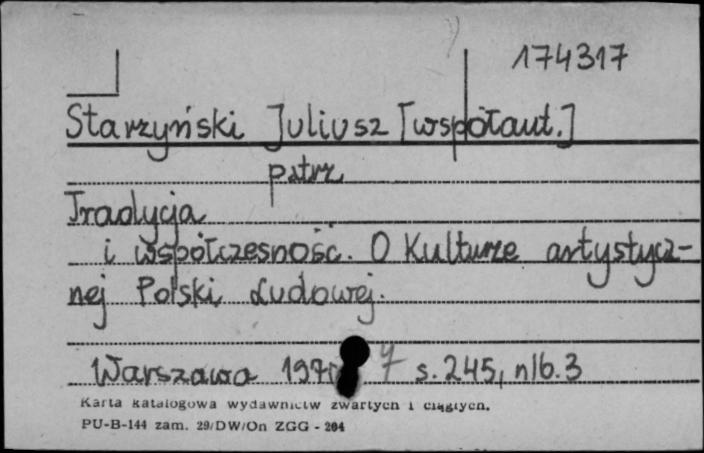 174317
Starzyński Juliusz [współaut.]
patrz
Tradycja
i współczesność. O Kulturze artystycz-
nej Polski Ludowej.
Warszawa 1970 s. 245, nlb. 3
Karta katalogowa wydawnictw zwartych i ciągłych.
PU-B-144 zam. 29/DW/On ZGG - 204